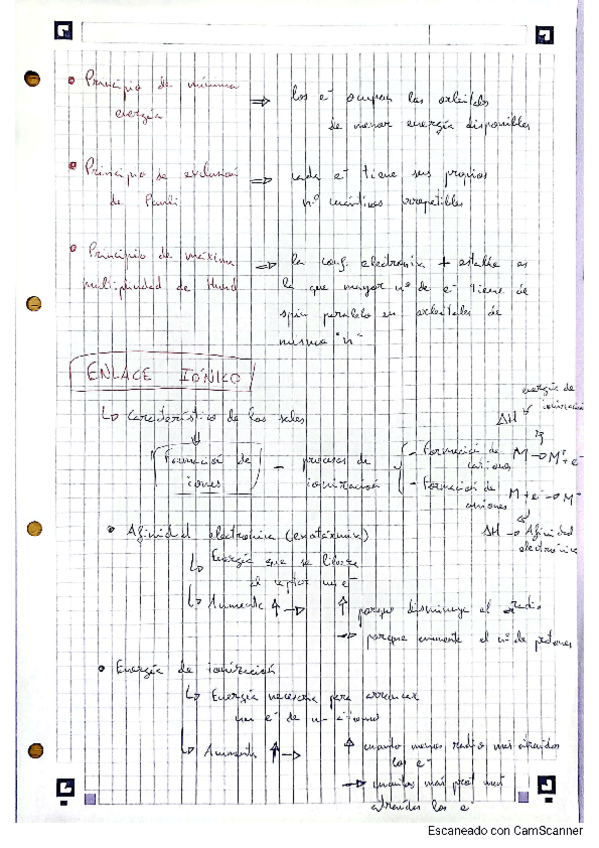 • Principio de mínima energía ⇒ los e⁻ ocupan los orbitales
de menor energía disponibles
• Principio de exclusión
de Pauli ⇒ cada e⁻ tiene sus propios
nº cuánticos irrepetibles
• Principio de máxima
multiplicidad de Hund ⇒ la conf. electrónica + estable es
la que mayor nº de e⁻ tiene de
spin paralelo en orbitales de
misma "n"
ENLACE IÓNICO
↳ Característico de las sales
Formación de
iones - procesos de
ionización
- Formación de
cationes M → M⁺ + e⁻
ΔH
energía de
ionización
- Formación de
aniones M + e⁻ → M⁻
ΔH → Afinidad
electrónica
• Afinidad electrónica (exotérmica)
↳ Energía que se libera
al captar un e⁻
↳ Aumenta ↑→ ↑ porque disminuye el radio
→ porque aumenta el nº de protones
• Energía de ionización
↳ Energía necesaria para arrancar
un e⁻ de un átomo
↳ Aumenta ↑→ ↑ cuanto menos radio más atraídos
los e⁻
→ cuantos más prot más
atraídos los e⁻
Escaneado con CamScanner